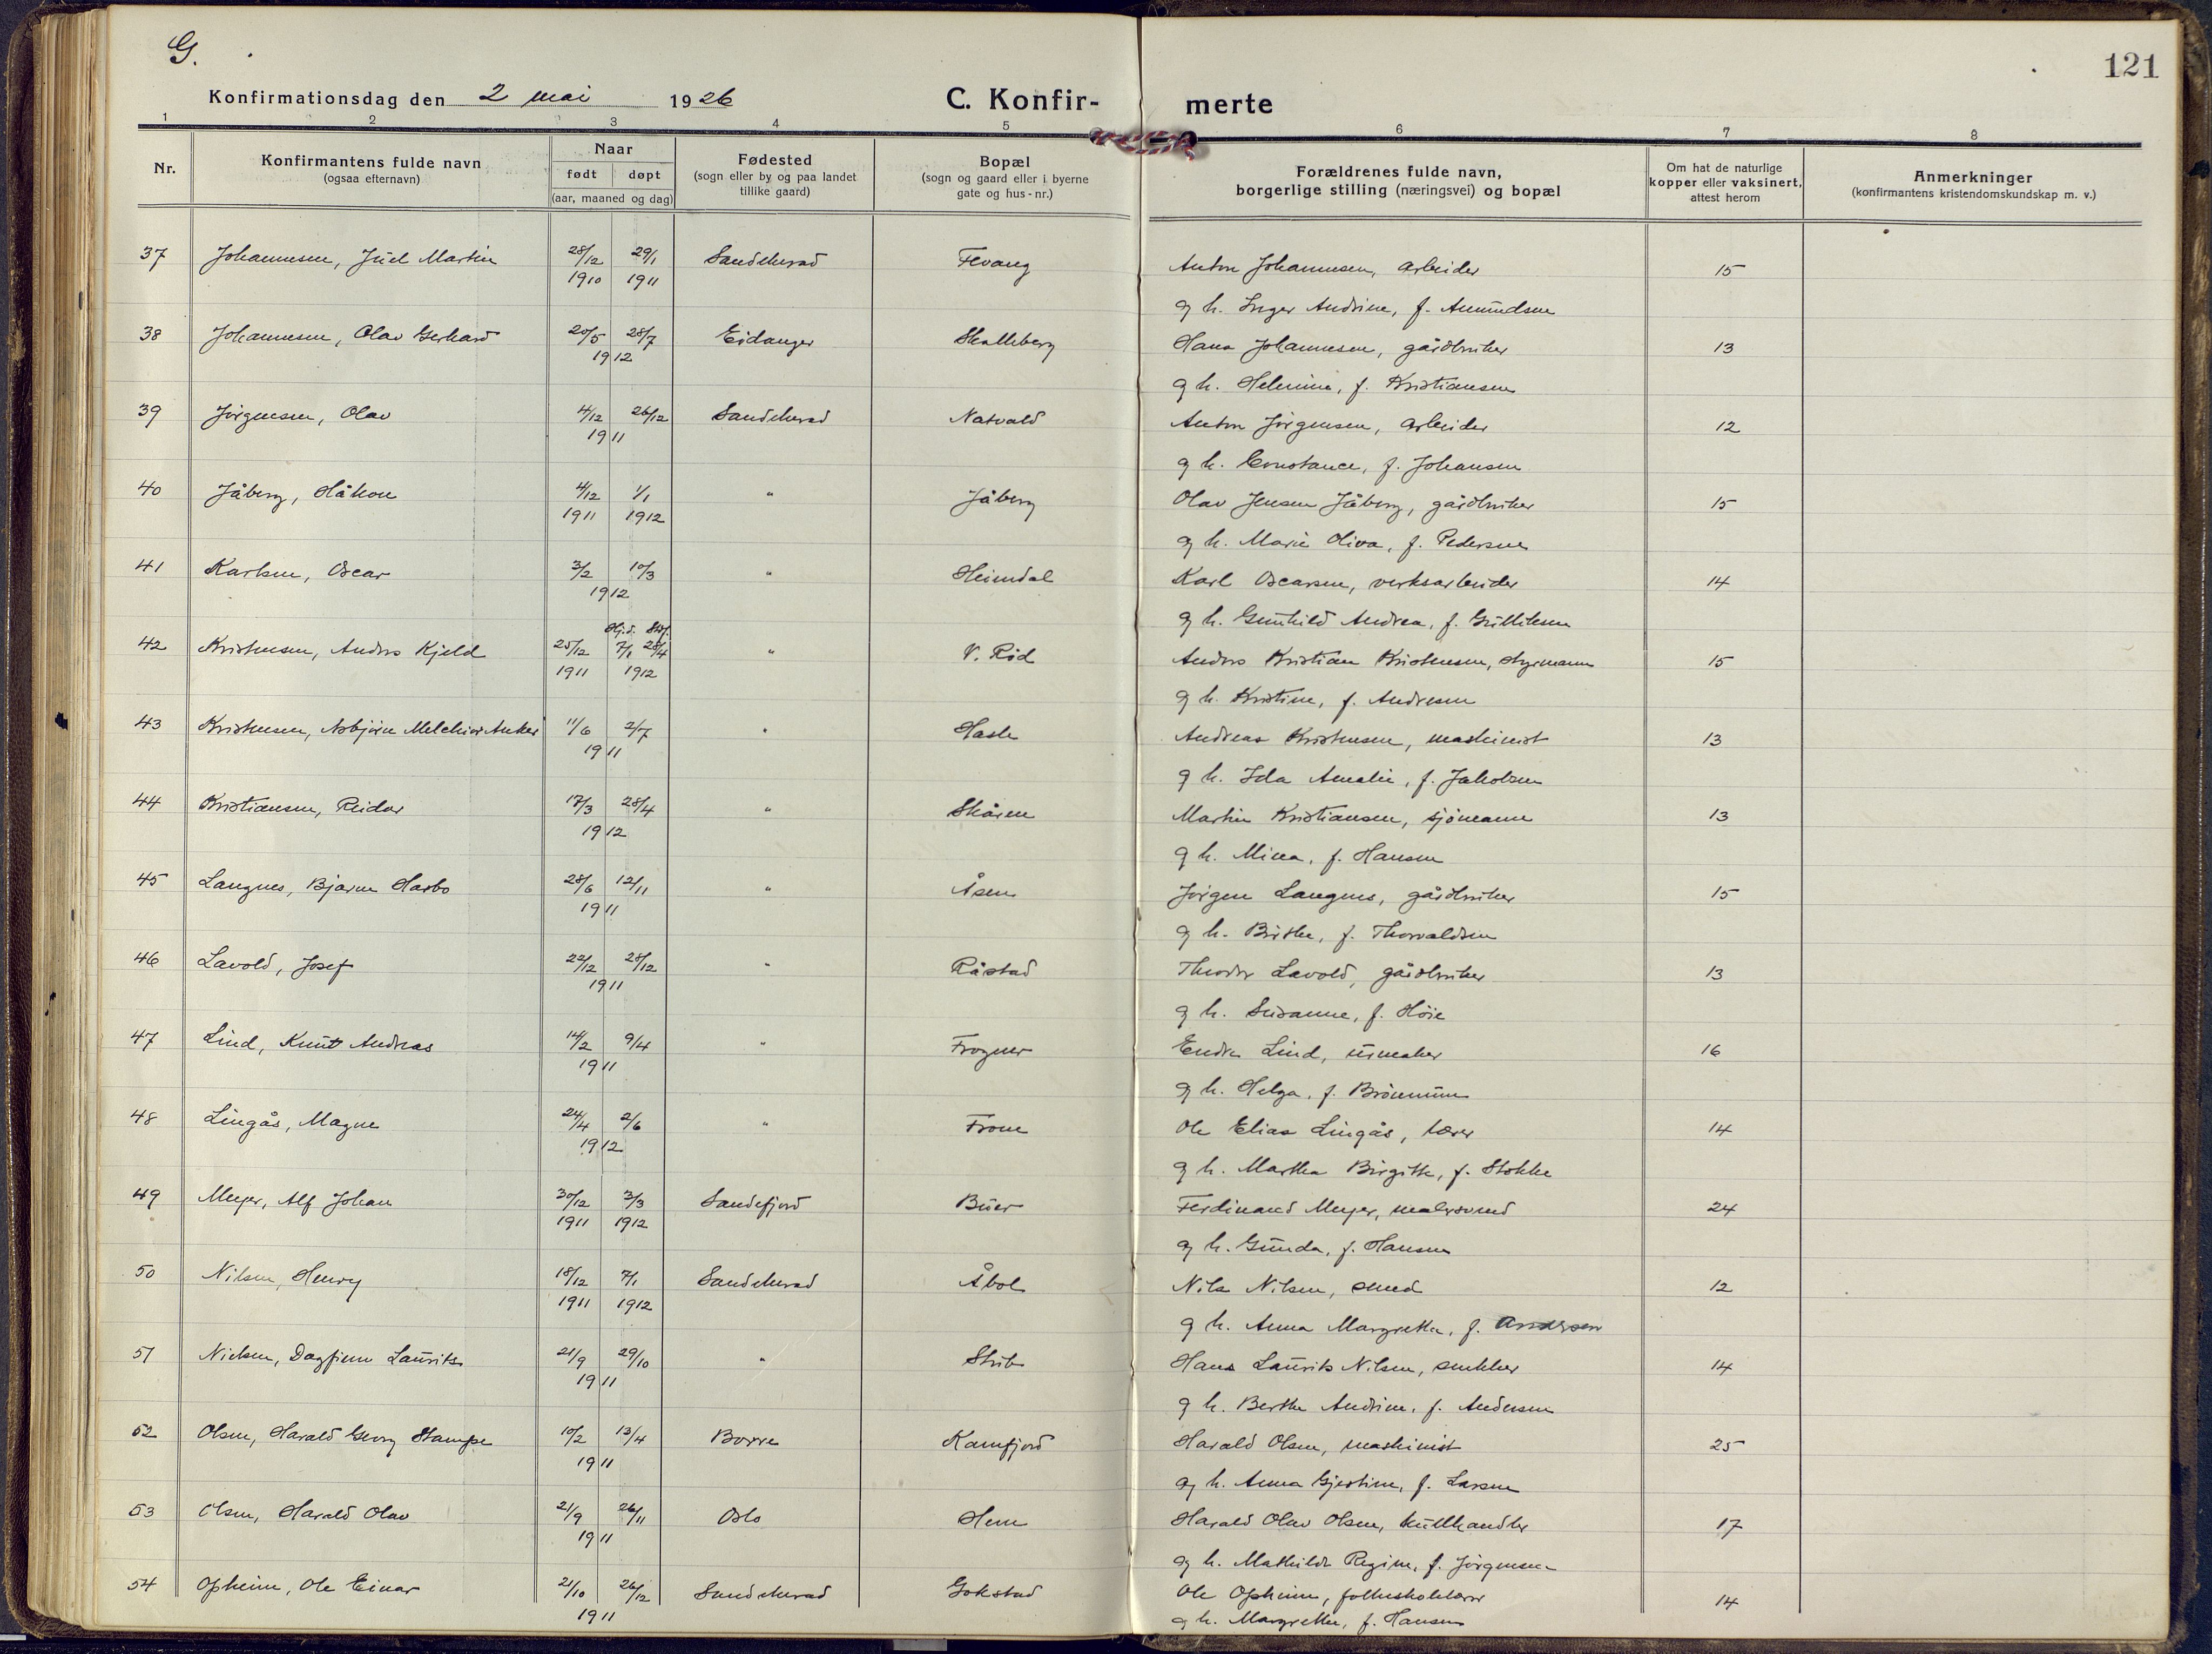 G.
121
Konfirmationsdag den 2 mai 1926
C. Konfir- merte
1 2 3 4 5 6 7 8
Nr.
Konfirmantens fulde navn
(ogsaa efternavn)
Naar
født døpt
(aar, maaned og dag)
Fødested
(sogn eller by og paa landet
tillike gaard)
Bopæl
(sogn og gaard eller i byerne
gate og hus-nr.)
Forældrenes fulde navn,
borgerlige stilling (næringsvei) og bopæl
Om hat de naturlige
kopper eller vaksinert,
attest herom
Anmerkninger
(konfirmantens kristendomskundskap m. v.)
37 Johannesen, Juel Martin 28/12 29/1 Sandeherad Fevang Anton Johannesen, arbeider 15
1910 1911
og h. Inger Andrine, f. Amundsen
38 Johannesen, Olav Gerhard 20/5 28/7 Eidanger Skalleberg Hans Johannesen, gårdbruker 13
1912
og h. Helmine, f. Kristiansen
39 Jörgensen, Olav 4/12 26/12 Sandeherad Natvald Anton Jörgensen, arbeider 12
1911
og h. Constance, f. Johansen
40 Jåberg, Håkon 4/12 1/1 " Jåberg Olav Jensen Jåberg, gårdbruker 15
1911 1912
og h. Marie Oliva, f. Pedersen
41 Karlsen, Oscar 3/2 10/3 " Heimdal Karl Oscarsen, verksarbeider 14
1912
og h. Gunhild Andrea, f. Gulliksen
Hj.d. Stf.
42 Kristensen, Anders Kjeld 25/12 7/1 28/4 " V. Röd Anders Kristian Kristensen, styrmann 15
1911 1912
og h. Kristine, f. Andresen
43 Kristensen, Asbjörn Melchior Anker 11/6 2/7 " Hasle Andreas Kristensen, maskinist 13
1911
og h. Ida Amalie, f. Jakobsen
44 Kristiansen, Reidar 17/3 28/4 " Skåren Martin Kristiansen, sjömann 13
1912
og h. Mina, f. Hansen
45 Langnes, Bjarne Harbo 28/6 12/11 " Åsen Jörgen Langnes, gårdbruker 15
1911
og h. Birthe, f. Thorvaldsen
46 Lavold, Josef 22/12 28/12 " Råstad Theodor Lavold, gårdbruker 13
1911
og h. Susanne, f. Höie
47 Lind, Knut Andreas 14/2 9/4 " Frogner Endre Lind, urmaker 16
1911
og h. Helga, f.
48 Lingås, Magne 24/4 2/6 " From Ole Elias Lingås, lærer 14
1912
og h. Martha Birgitte, f. Stokke
49 Meyer, Alf Johan 30/12 3/3 Sandefjord Buer Ferdinand Meyer, malersvend 24
1911 1912
og h. Gunda, f. Hansen
50 Nilsen, Henry 18/12 7/1 Sandeherad Åbol Nils Nilsen, smed 12
1911 1912
og h. Anna Margrethe, f. Andersen
51 Nielsen, Dagfinn Laurits 21/9 29/10 " Strib Hans Laurits Nilsen, snekker 14
1911
og h. Berthe Andrine, f. Andersen
52 Olsen, Harald Georg Stampe 10/2 13/4 Borre Kamfjord Harald Olsen, maskinist 25
1911
og h. Anna Gjestine, f. Larsen
53 Olsen, Harald Olav 21/9 26/11 Oslo Hem Harald Olav Olsen, kullhandler 17
1911
og h. Mathilde Regine, f. Jörgensen
54 Opheim, Ole Einar 21/10 26/12 Sandeherad Gokstad Ole Opheim, folkeskolelærer 14
1911
og h. Margrethe, f. Hansen